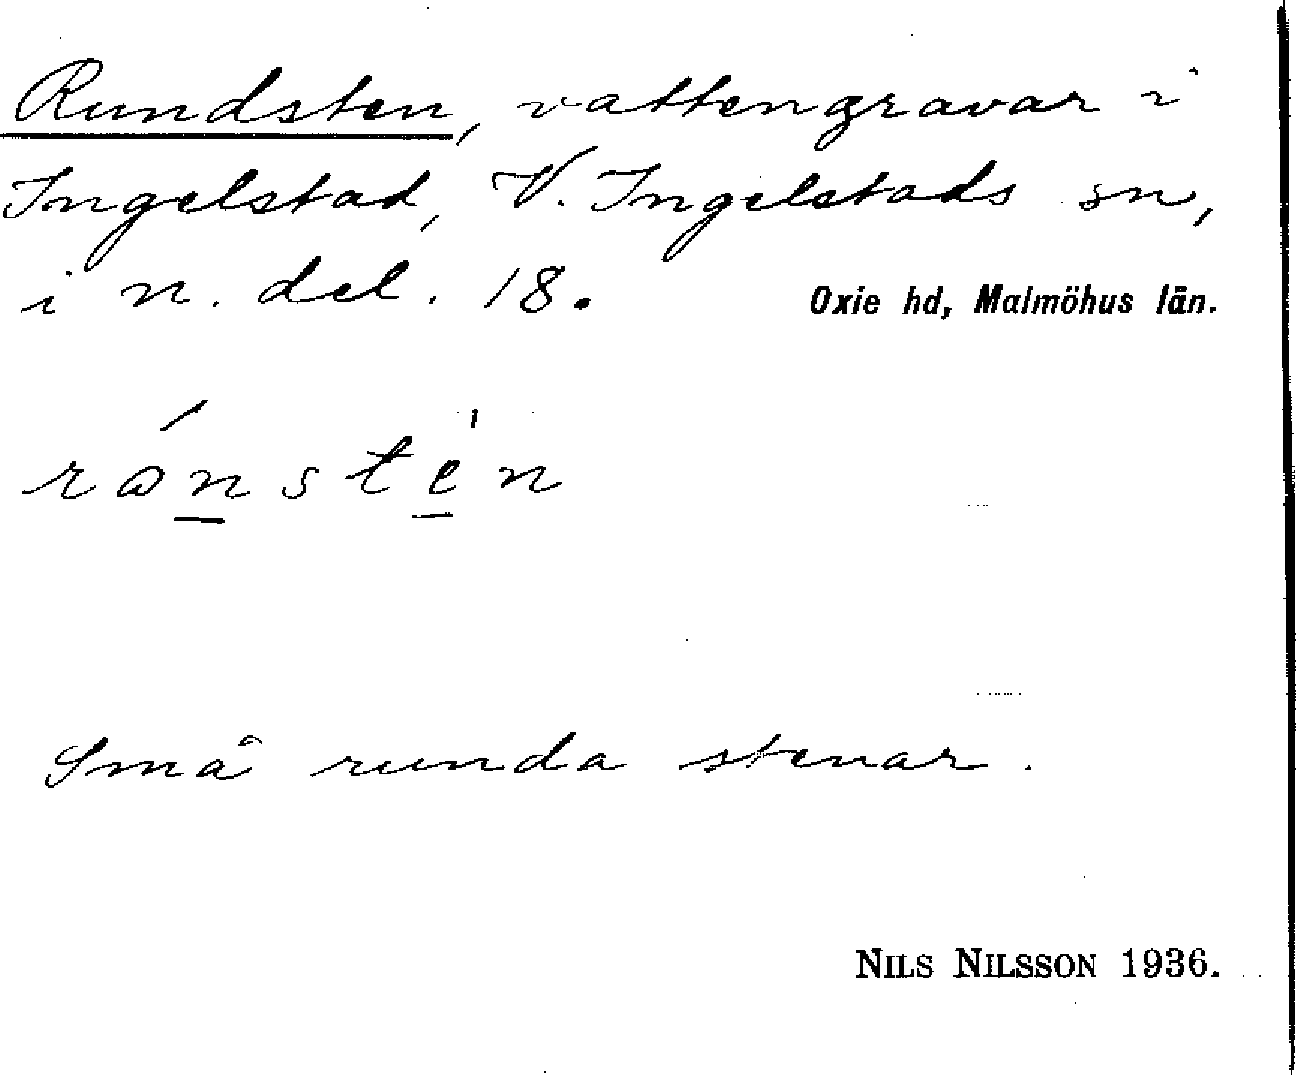 Rundsten, vattengravar i
Ingelstad, V. Ingelstads sn,
i n. del. 18. Oxie hd, Malmöhus län.
rønstèn
Små runda stenar.
NILS NILSSON 1936.